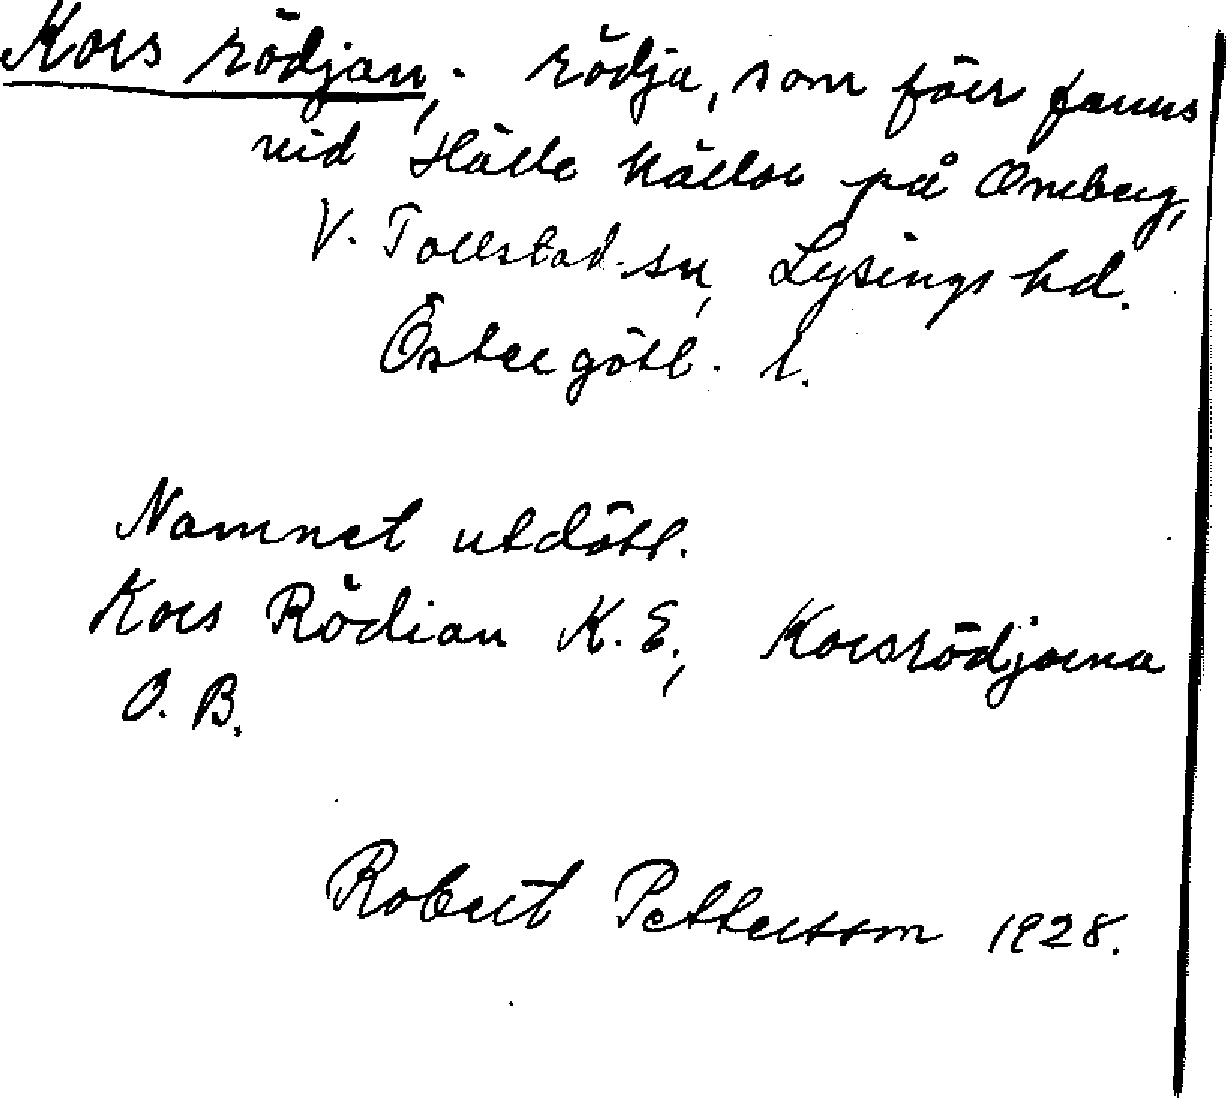 Kors rödjan, . rödja, som förr fanns
vid Hälle källor på Omberg,
V. Tollstad sn, Lysings hd.
Östergötl. l.
Namnet utdött.
Kors Rödian K. E., Korsrödjorna
O. B.
Robert Pettersson 1928.